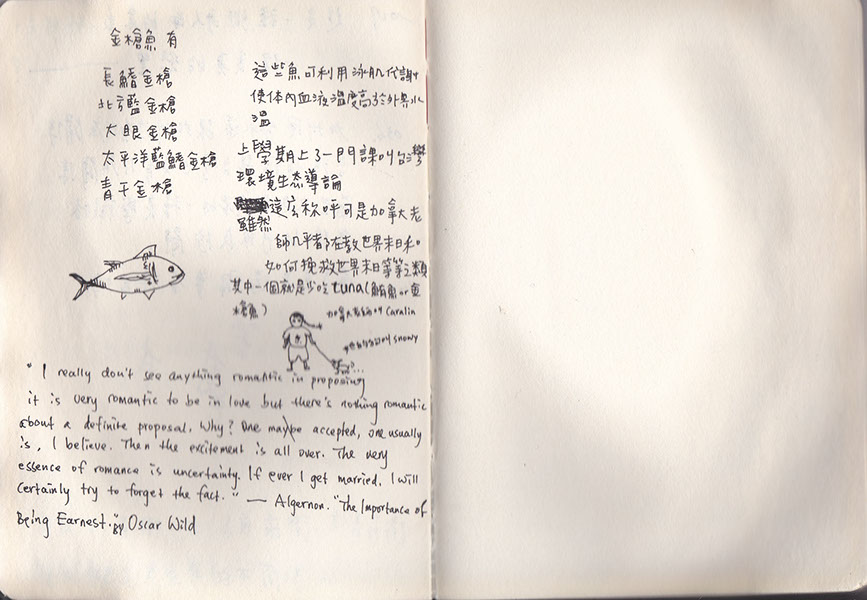 金槍魚有
長鰭金槍
北方藍金槍
大眼金槍
太平洋藍鰭金槍
青干金槍
這些魚可利用泳肌代謝
使体內血液溫度高於外界水
溫
上學期上了一門課叫台灣
環境生态導論
雖然這么称呼可是加拿大老
師几乎都在教世界末日和
如何挽救世界末日等等之類
其中一個就是少吃tuna(鮪魚or金
槍魚)
加拿大老師叫 Caralin
她的狗叫 snowy
" I really don't see anything romantic in proposing
it is very romantic to be in love but there's nothing romantic
about a definite proposal. Why? One may be accepted, one usually
is, I believe. Then the excitement is all over. The very
essence of romance is uncertainty. If ever I get married, I will
certainly try to forget the fact. " — Algernon. "The Importance of
Being Earnest." By Oscar Wild